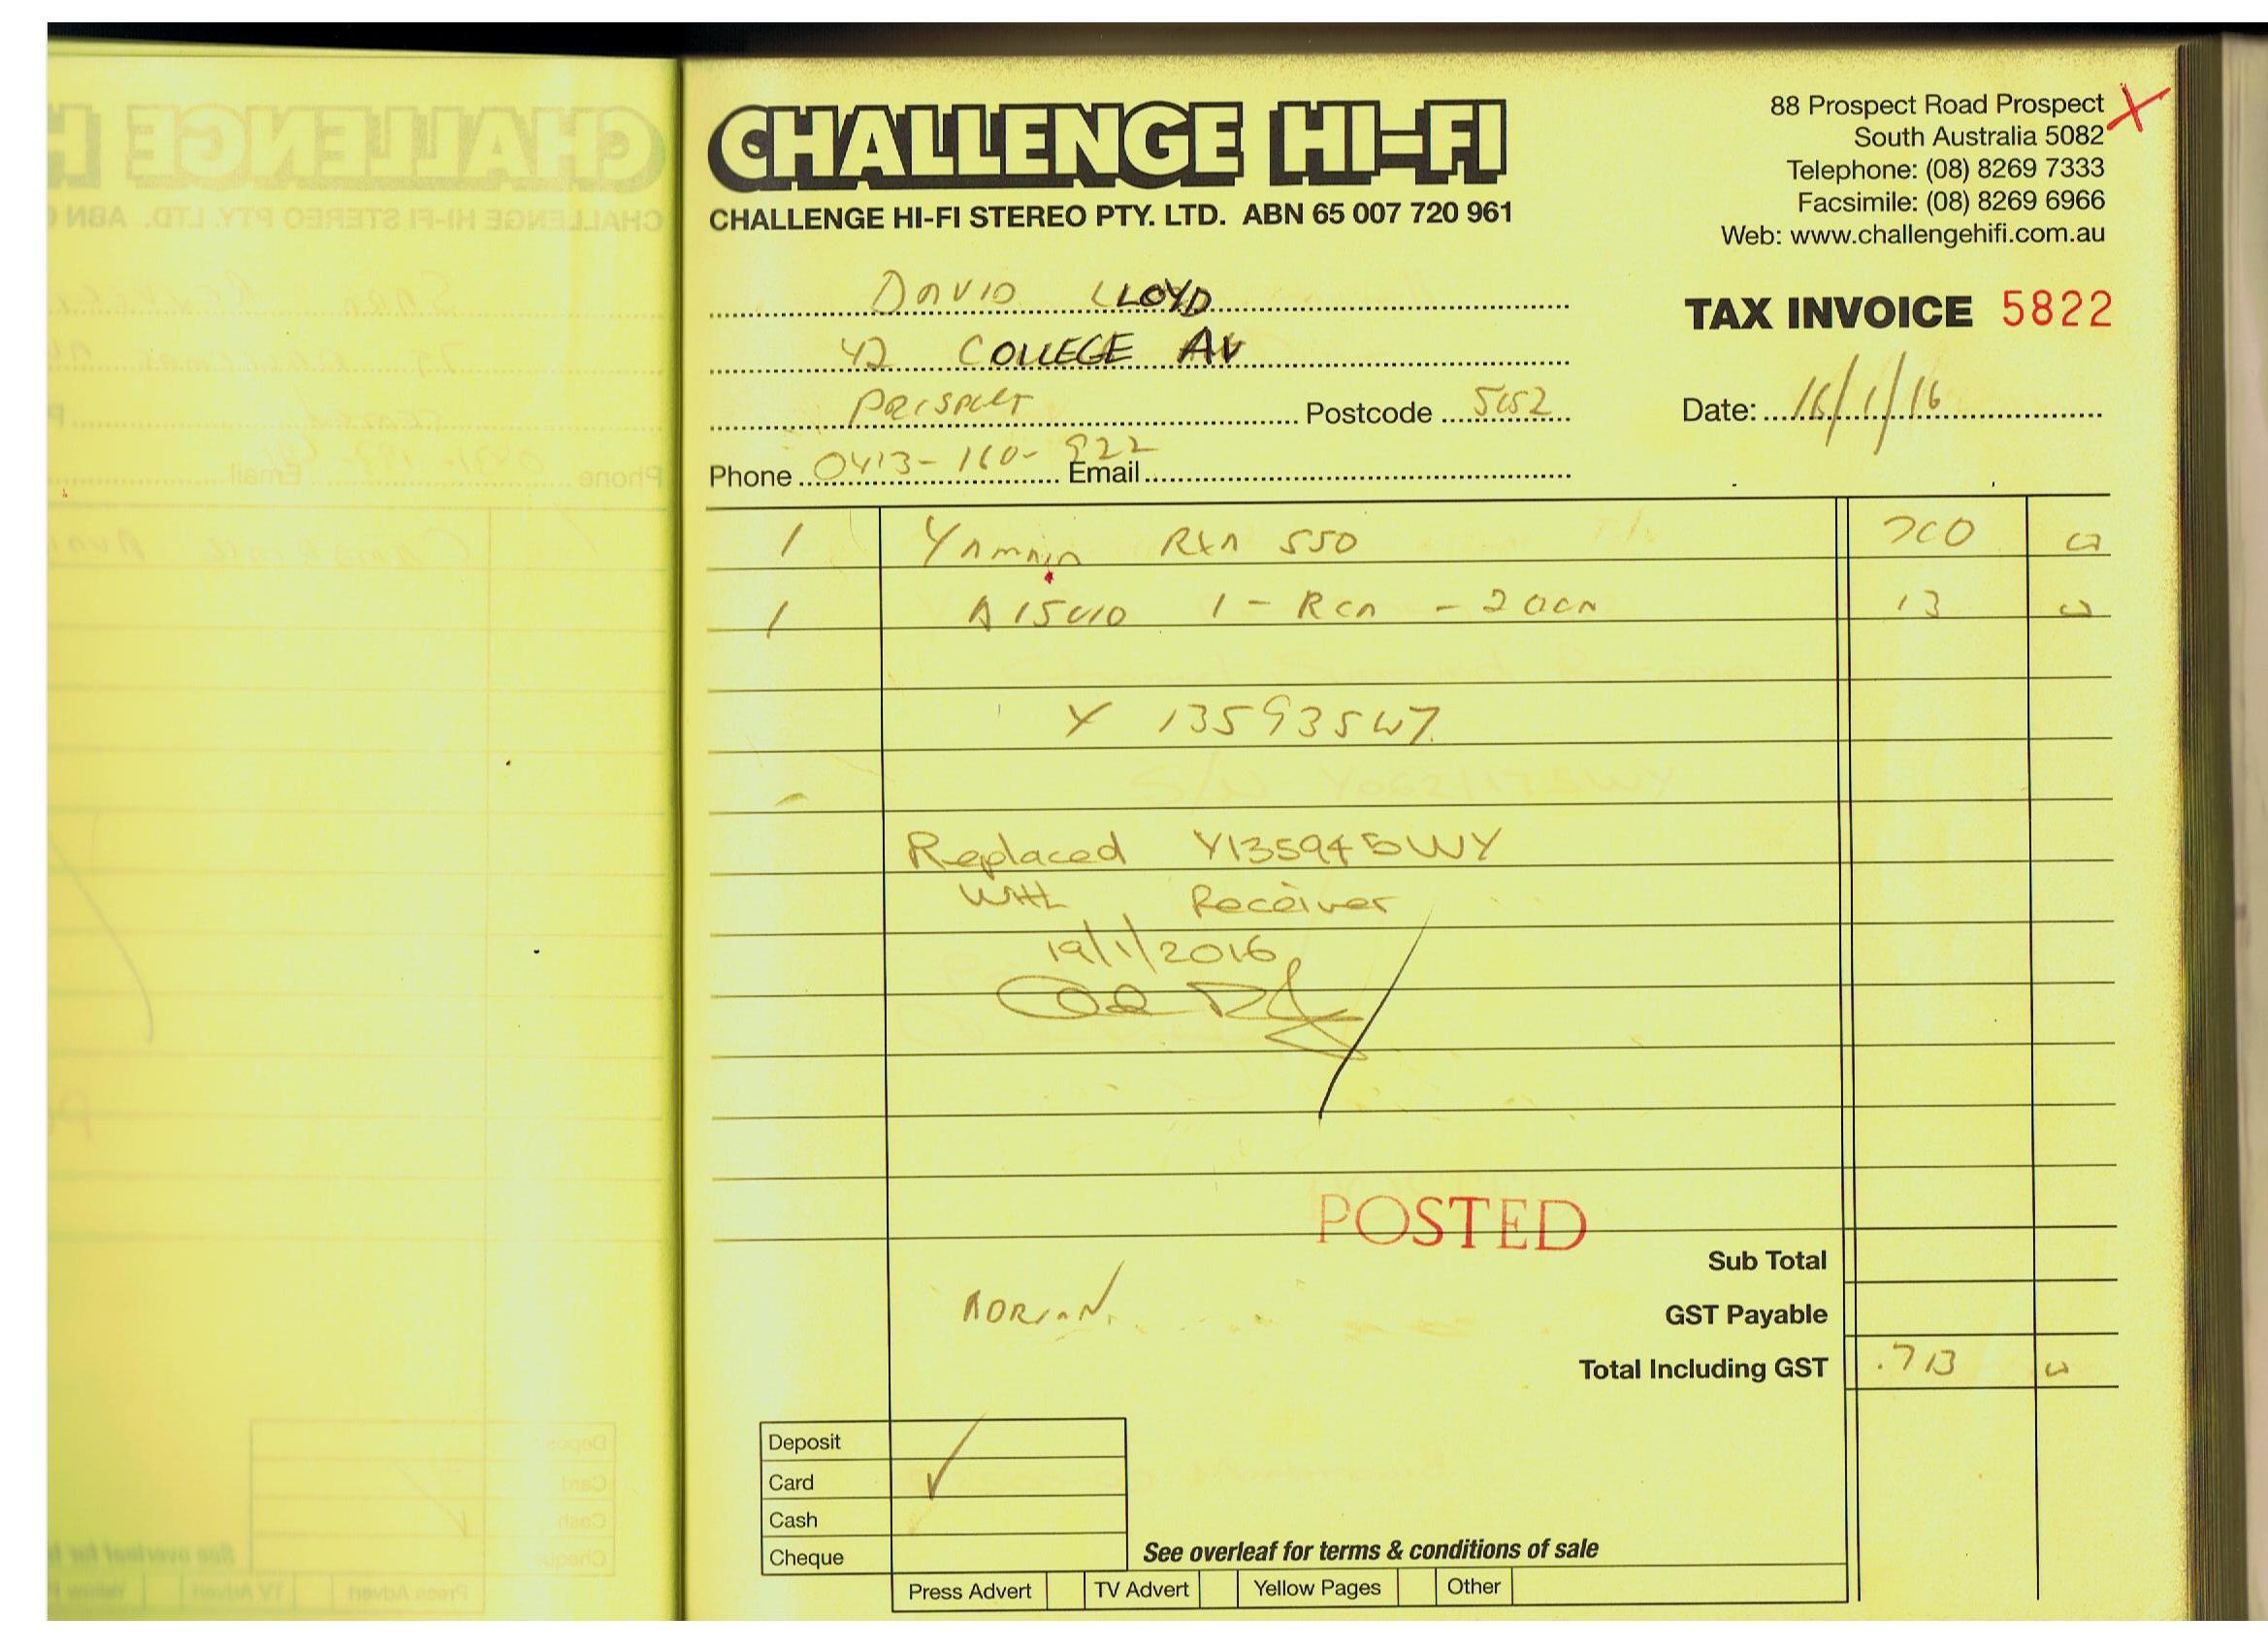 CHALLENGE HI-FI
CHALLENGE HI-FI STEREO PTY. LTD. ABN 65 007 720 961
88 Prospect Road Prospect
South Australia 5082
Telephone: (08) 8269 7333
Facsimile: (08) 8269 6966
Web: www.challengehifi.com.au
TAX INVOICE 5822
DAVID LLOYD
42 COLLEGE AV
Postcode
Date: 16/1/16
Phone 0413-160-922 Email
1 Yamaha RXA 550 700
1 1 - RCA 13
Y 135935WZ
Replaced Y135945WY
With Receiver
19/1/2016
POSTED
ADRIAN
Sub Total
GST Payable
Total Including GST 713
Deposit
Card ✓
Cash
Cheque
See overleaf for terms & conditions of sale
Press Advert TV Advert Yellow Pages Other